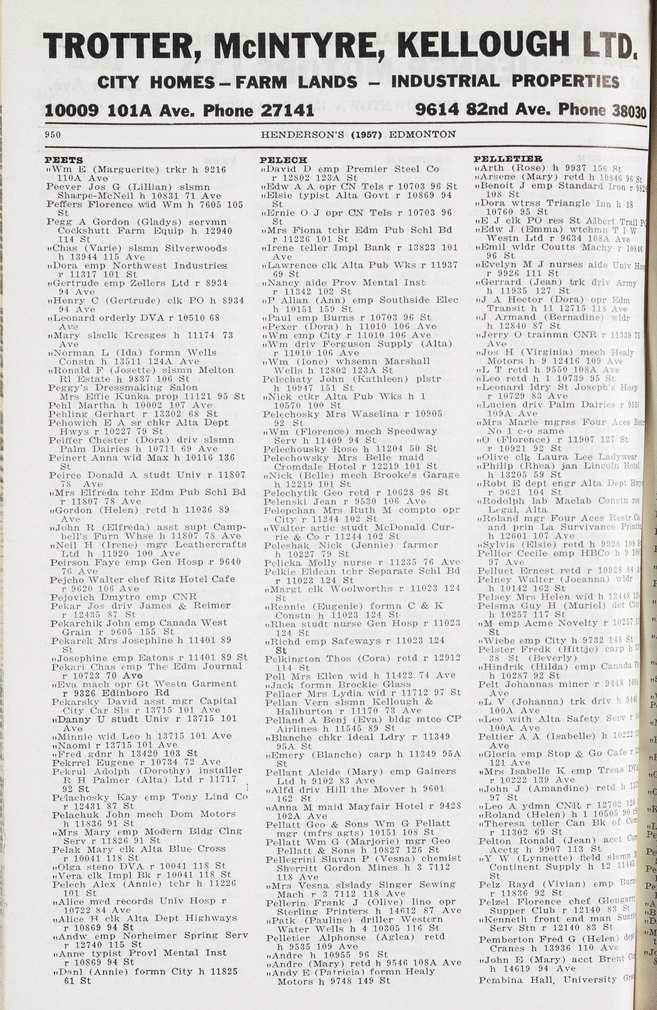 TROTTER, McINTYRE, KELLOUGH LTD.
CITY HOMES – FARM LANDS – INDUSTRIAL PROPERTIES
10009 101A Ave. Phone 27141 9614 82nd Ave. Phone 38030
950 HENDERSON'S (1957) EDMONTON
PEETS
„Wm E (Marguerite) trkr h 9216
110A Ave
Peever Jos G (Lillian) slsmn
Sharpe-McNeil h 10831 71 Ave
Peffers Florence wid Wm h 7605 105
St
Pegg A Gordon (Gladys) servmn
Cockshutt Farm Equip h 12940
114 St
„Chas (Varie) slsmn Silverwoods
h 13944 115 Ave
„Dora emp Northwest Industries
r 11317 101 St
„Gertrude emp Zellers Ltd r 8934
94 Ave
„Henry C (Gertrude) clk PO h 8934
94 Ave
„Leonard orderly DVA r 10510 68
Ave
„Mary slsclk Kresges h 11174 73
Ave
„Norman L (Ida) formn Wells
Constn h 13511 124A Ave
„Ronald F (Josette) slsmn Melton
Rl Estate h 9837 106 St
Peggy's Dressmaking Salon
Mrs Effie Kunka prop 11121 95 St
Pehl Martha h 10002 107 Ave
Pehling Gerhart r 13302 68 St
Pehowich E A sr chkr Alta Dept
Hwys r 10227 79 St
Peiffer Chester (Dora) driv slsmn
Palm Dairies h 10711 69 Ave
Peinert Anna wid Max h 10116 136
St
Peirce Donald A studt Univ r 11807
78 Ave
„Mrs Elfreda tchr Edm Pub Schl Bd
r 11807 78 Ave
„Gordon (Helen) retd h 11036 89
Ave
„John R (Elfreda) asst supt Camp-
bell's Furn Whse h 11807 78 Ave
„Neil H (Irene) mgr Leathercrafts
Ltd h 11920 100 Ave
Peirson Faye emp Gen Hosp r 9640
76 Ave
Pejcho Walter chef Ritz Hotel Cafe
r 9620 106 Ave
Pejovich Dmytro emp CNR
Pekar Jos driv James & Reimer
r 12435 87 St
Pekarchik John emp Canada West
Grain r 9605 155 St
Pekarek Mrs Josephine h 11401 89
St
„Josephine emp Eatons r 11401 89 St
Pekari Chas emp The Edm Journal
r 10723 70 Ave
„Eva mach opr Gt Westn Garment
r 9326 Edinboro Rd
Pekarsky David asst mgr Capital
City Car Sls r 13715 101 Ave
„Danny U studt Univ r 13715 101
Ave
„Minnie wid Leo h 13715 101 Ave
„Naomi r 13715 101 Ave
„Fred gdnr h 13420 103 St
Pekrrel Eugene r 10734 72 Ave
Pekrul Adolph (Dorothy) installer
R H Palmer (Alta) Ltd r 11717
92 St
Pelachosky Kay emp Tony Lind Co
r 12431 87 St
Pelachuk John mech Dom Motors
h 11836 91 St
„Mrs Mary emp Modern Bldg Clng
Serv r 11826 91 St
Pelak Mary clk Alta Blue Cross
r 10041 118 St
„Olga steno DVA r 10041 118 St
„Vera clk Impl Bk r 10041 118 St
Pelech Alex (Annie) tchr h 11226
101 St
„Alice med records Univ Hosp r
10722 84 Ave
„Alice H clk Alta Dept Highways
r 10869 94 St
„Andw emp Norheimer Spring Serv
r 12740 115 St
„Anne typist Provl Mental Inst
r 10869 94 St
„Danl (Annie) formn City h 11825
61 St
PELECH
„David D emp Premier Steel Co
r 12802 123A St
„Edw A A opr CN Tels r 10703 96 St
„Elsie typist Alta Govt r 10869 94
St
„Ernie O J opr CN Tels r 10703 96
St
„Mrs Fiona tchr Edm Pub Schl Bd
r 11226 101 St
„Irene teller Impl Bank r 13823 101
Ave
„Lawrence clk Alta Pub Wks r 11937
69 St
„Nancy aide Prov Mental Inst
r 11342 102 St
„P Allan (Ann) emp Southside Elec
h 10151 159 St
„Paul emp Burns r 10703 96 St
„Pexer (Dora) h 11010 106 Ave
„Wm emp City r 11010 106 Ave
„Wm driv Ferguson Supply (Alta)
r 11010 106 Ave
„Wm (Ione) whsemn Marshall
Wells h 12802 123A St
Pelechaty John (Kathleen) plstr
h 10947 151 St
„Nick ctkr Alta Pub Wks h 1
10570 100 St
Pelechosky Mrs Waselina r 10905
92 St
„Wm (Florence) mech Speedway
Serv h 11409 94 St
Pelechousky Rose h 11204 50 St
Pelechowsky Mrs Belle maid
Cromdale Hotel r 12219 101 St
„Nick (Belle) mech Brooke's Garage
h 12219 101 St
Pelechytik Geo retd r 10628 96 St
Pelenski Jean r 9530 106 Ave
Pelepchan Mrs Ruth M compto opr
City r 11244 102 St
„Walter artic studt McDonald Cur-
rie & Co r 11244 102 St
Peleshak Nick (Jennie) farmer
h 10227 79 St
Pelicka Molly nurse r 11235 76 Ave
Pelkie Eldean tchr Separate Schl Bd
r 11023 124 St
„Margt clk Woolworths r 11023 124
St
„Rennie (Eugenie) formn C & K
Constn h 11023 124 St
„Rhea studt nurse Gen Hosp r 11023
124 St
„Richd emp Safeways r 11023 124
St
Pelkington Thos (Cora) retd r 12912
114 St
Pell Mrs Ellen wid h 11422 74 Ave
„Jack formn Brockie Glass
Pellaer Mrs Lydia wid r 11712 97 St
Pellan Vern slsmn Kellough &
Haliburton r 11170 73 Ave
Pelland A Benj (Eva) bldg mtce CP
Airlines h 11545 89 St
„Blanche chkr Ideal Ldry r 11349
95A St
„Emery (Blanche) carp h 11349 95A
St
Pellant Alcide (Mary) emp Gainers
Ltd h 9102 83 Ave
„Alfd driv Hill the Mover h 9601
162 St
„Anna M maid Mayfair Hotel r 9428
102A Ave
Pellatt Geo & Sons Wm G Pellatt
mgr (mfrs agts) 10151 108 St
Pellatt Wm G (Marjorie) mgr Geo
Pellatt & Sons h 10827 126 St
Pellegrini Slavan P (Vesna) chemist
Sherritt Gordon Mines h 3 7112
118 Ave
„Mrs Vesna slslady Singer Sewing
Mach r 3 7112 118 Ave
Pellerin Frank J (Olive) lino opr
Sterling Printers h 14612 87 Ave
„Patk (Pauline) driller Western
Water Wells h 4 10305 116 St
Pelletier Alphonse (Aglea) retd
h 9535 109 Ave
„Andre h 10955 96 St
„Andre (Mary) retd h 9546 108A Ave
„Andy E (Patricia) formn Healy
Motors h 9748 149 St
PELLETIER
„Arth (Rose) h 9937 156 St
„Arsene (Mary) retd h 10846 96 St
„Benoit J emp Standard Iron r
108 St
„Dora wtrss Triangle Inn h 18
10760 95 St
„E J clk PO res St Albert Trail
„Edw J (Emma) wtchmn T I W
Westn Ltd r 9634 108A Ave
„Emil wldr Coutts Machy r 10846
96 St
„Evelyn M J nurses aide Univ
r 9926 111 St
„Gerrard (Jean) trk driv Army
h 11935 127 St
„J A Hector (Dora) opr Edm
Transit h 11 12715 118 Ave
„J Armand (Bernadine) wldr
h 12840 87 St
„Jerry O trainmn CNR r 11339
„Jos H (Virginia) mech Healy
Motors h 9 12416 109 Ave
„L T retd h 9550 108A Ave
„Leo retd h 10739 95 St
„Leonard ldry St Joseph's Hosp
r 10729 83 Ave
„Lucien driv Palm Dairies r
109A Ave
„Mrs Marie mgrss Four Aces
No 1 c-o same
„O (Florence) r 11907 127 St
r 10921 92 St
„Olive clk Laura Lee Ladywear
„Philip (Rhea) jan Lincoln Hotel
h 13205 59 St
„Robt E dept engr Alta Dept
r 9621 104 St
„Rodolph lab Maclab Constn res
Legal, Alta
„Roland mgr Four Aces Restr
and prin La Survivance
h 12601 107 Ave
„Sylvis (Elsie) retd h 9928 109
Pellier Cecile emp HBCo h 9
97 Ave
Pelluet Ernest retd r 10928
Pelney Walter (Joeanna) wldr
h 10142 162 St
Pelsey Mrs Helen wid h 12448
Pelsma Guy H (Muriel) det
h 10257 117 St
„M emp Acme Novelty r 10257
St
„Wiebe emp City h 9732 148 St
Pelster Fredk (Hittje) carp h
38 St (Beverly)
„Hindrik (Hilda) emp Canada
h 10287 92 St
Pelt Johannes miner r 9448
Ave
„L V (Johanna) trk driv h
100A Ave
„Leo with Alta Safety Serv r
100A Ave
Peltier A A (Isabelle) h 10222
Ave
„Gloria emp Stop & Go Cafe r
121 Ave
„Mrs Isabelle K emp Treas
r 10222 139 Ave
„John J (Amandine) retd h
97 St
„Leo A ydmn CNR r 12702
„Roland (Helen) h 1 10505
„Theresa teller Can Bk of
r 11302 69 St
Pelton Ronald (Jean) acct
Acctg h 9907 113 St
„Y W (Lynnette) field slsmn
Continent Supply h 12
St
Pelz Rayd (Vivian) emp
r 11836 92 St
Pelzel Florence chef
Supper Club r 12140 83 St
„Kenneth front end man
Serv Stn r 12140 83 St
Pemberton Fred G (Helen)
Cranes h 13936 110 Ave
„John E (Mary) acct Brent
h 14619 94 Ave
Pembina Hall, University